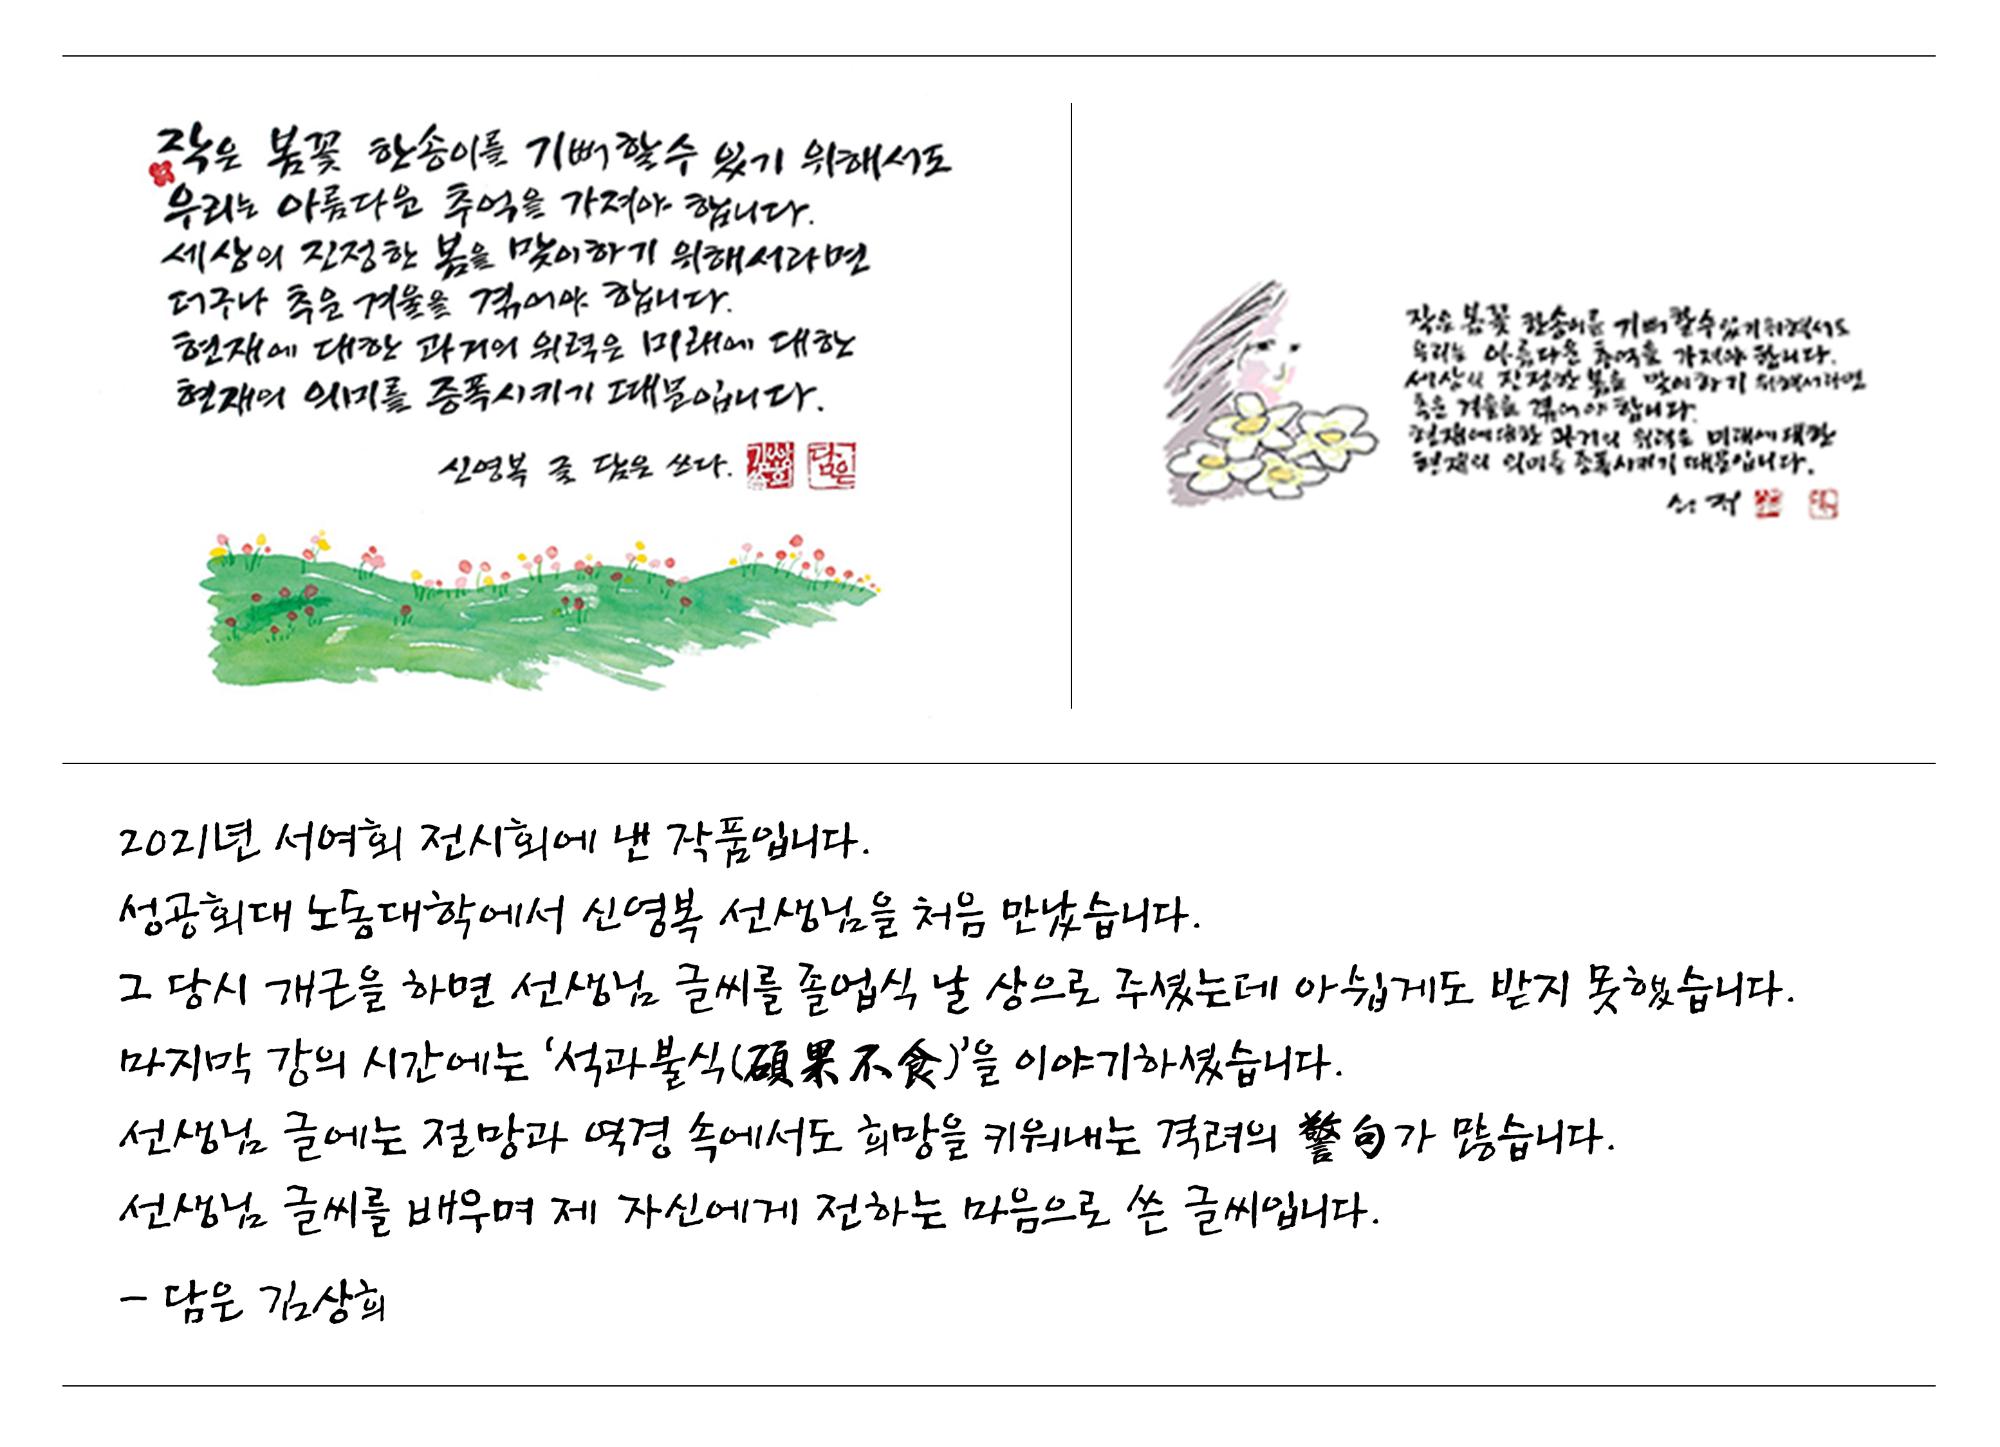 작은 봄꽃 한송이를 기뻐할수 있기 위해서도
우리는 아름다운 추억을 가져야 합니다.
세상의 진정한 봄을 맞이하기 위해서라면
더구나 추운 겨울을 겪어야 합니다.
현재에 대한 과거의 위력은 미래에 대한
현재의 의미를 증폭시키기 때문입니다.
신영복 글 담은 쓰다.
김상희
담은
작은 봄꽃 한송이를 기뻐할수있기위해서도
우리는 아름다운 추억을 가져야 합니다.
세상의 진정한 봄을 맞이하기 위해서라면
추운 겨울을 겪어야 합니다.
현재에대한 과거의 위력은 미래에대한
현재의 의미를 증폭시키기 때문입니다.
2021년 서여회 전시회에 낸 작품입니다.
성공회대 노동대학에서 신영복 선생님을 처음 만났습니다.
그 당시 개근을 하면 선생님 글씨를 졸업식 날 상으로 주셨는데 아쉽게도 받지 못했습니다.
마지막 강의 시간에는 ‘석과불식(碩果不食)’을 이야기하셨습니다.
선생님 글에는 절망과 역경 속에서도 희망을 키워내는 격려의 警句가 많습니다.
선생님 글씨를 배우며 제 자신에게 전하는 마음으로 쓴 글씨입니다.
– 담은 김상희